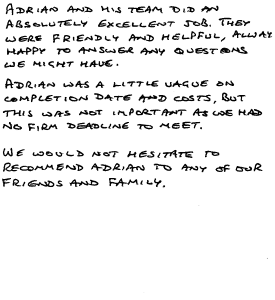 ADRIAN AND HIS TEAM DID AN
ABSOLUTELY EXCELLENT JOB. THEY
WERE FRIENDLY AND HELPFUL, ALWAY
HAPPY TO ANSWER ANY QUESTIONS
WE MIGHT HAVE.
ADRIAN WAS A LITTLE VAGUE ON
COMPLETION DATE AND COSTS, BUT
THIS WAS NOT IMPORTANT AS WE HAD
NO FIRM DEADLINE TO MEET.
WE WOULD NOT HESITATE TO
RECOMMEND ADRIAN TO ANY OF OUR
FRIENDS AND FAMILY.